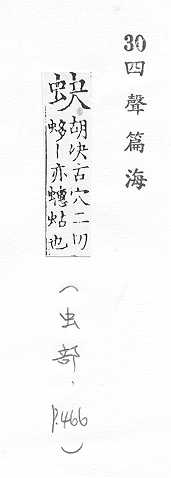 30 四聲篇海
蚗
胡决古穴二切
蛥丨亦蟪蛄也
(虫部, p.466)